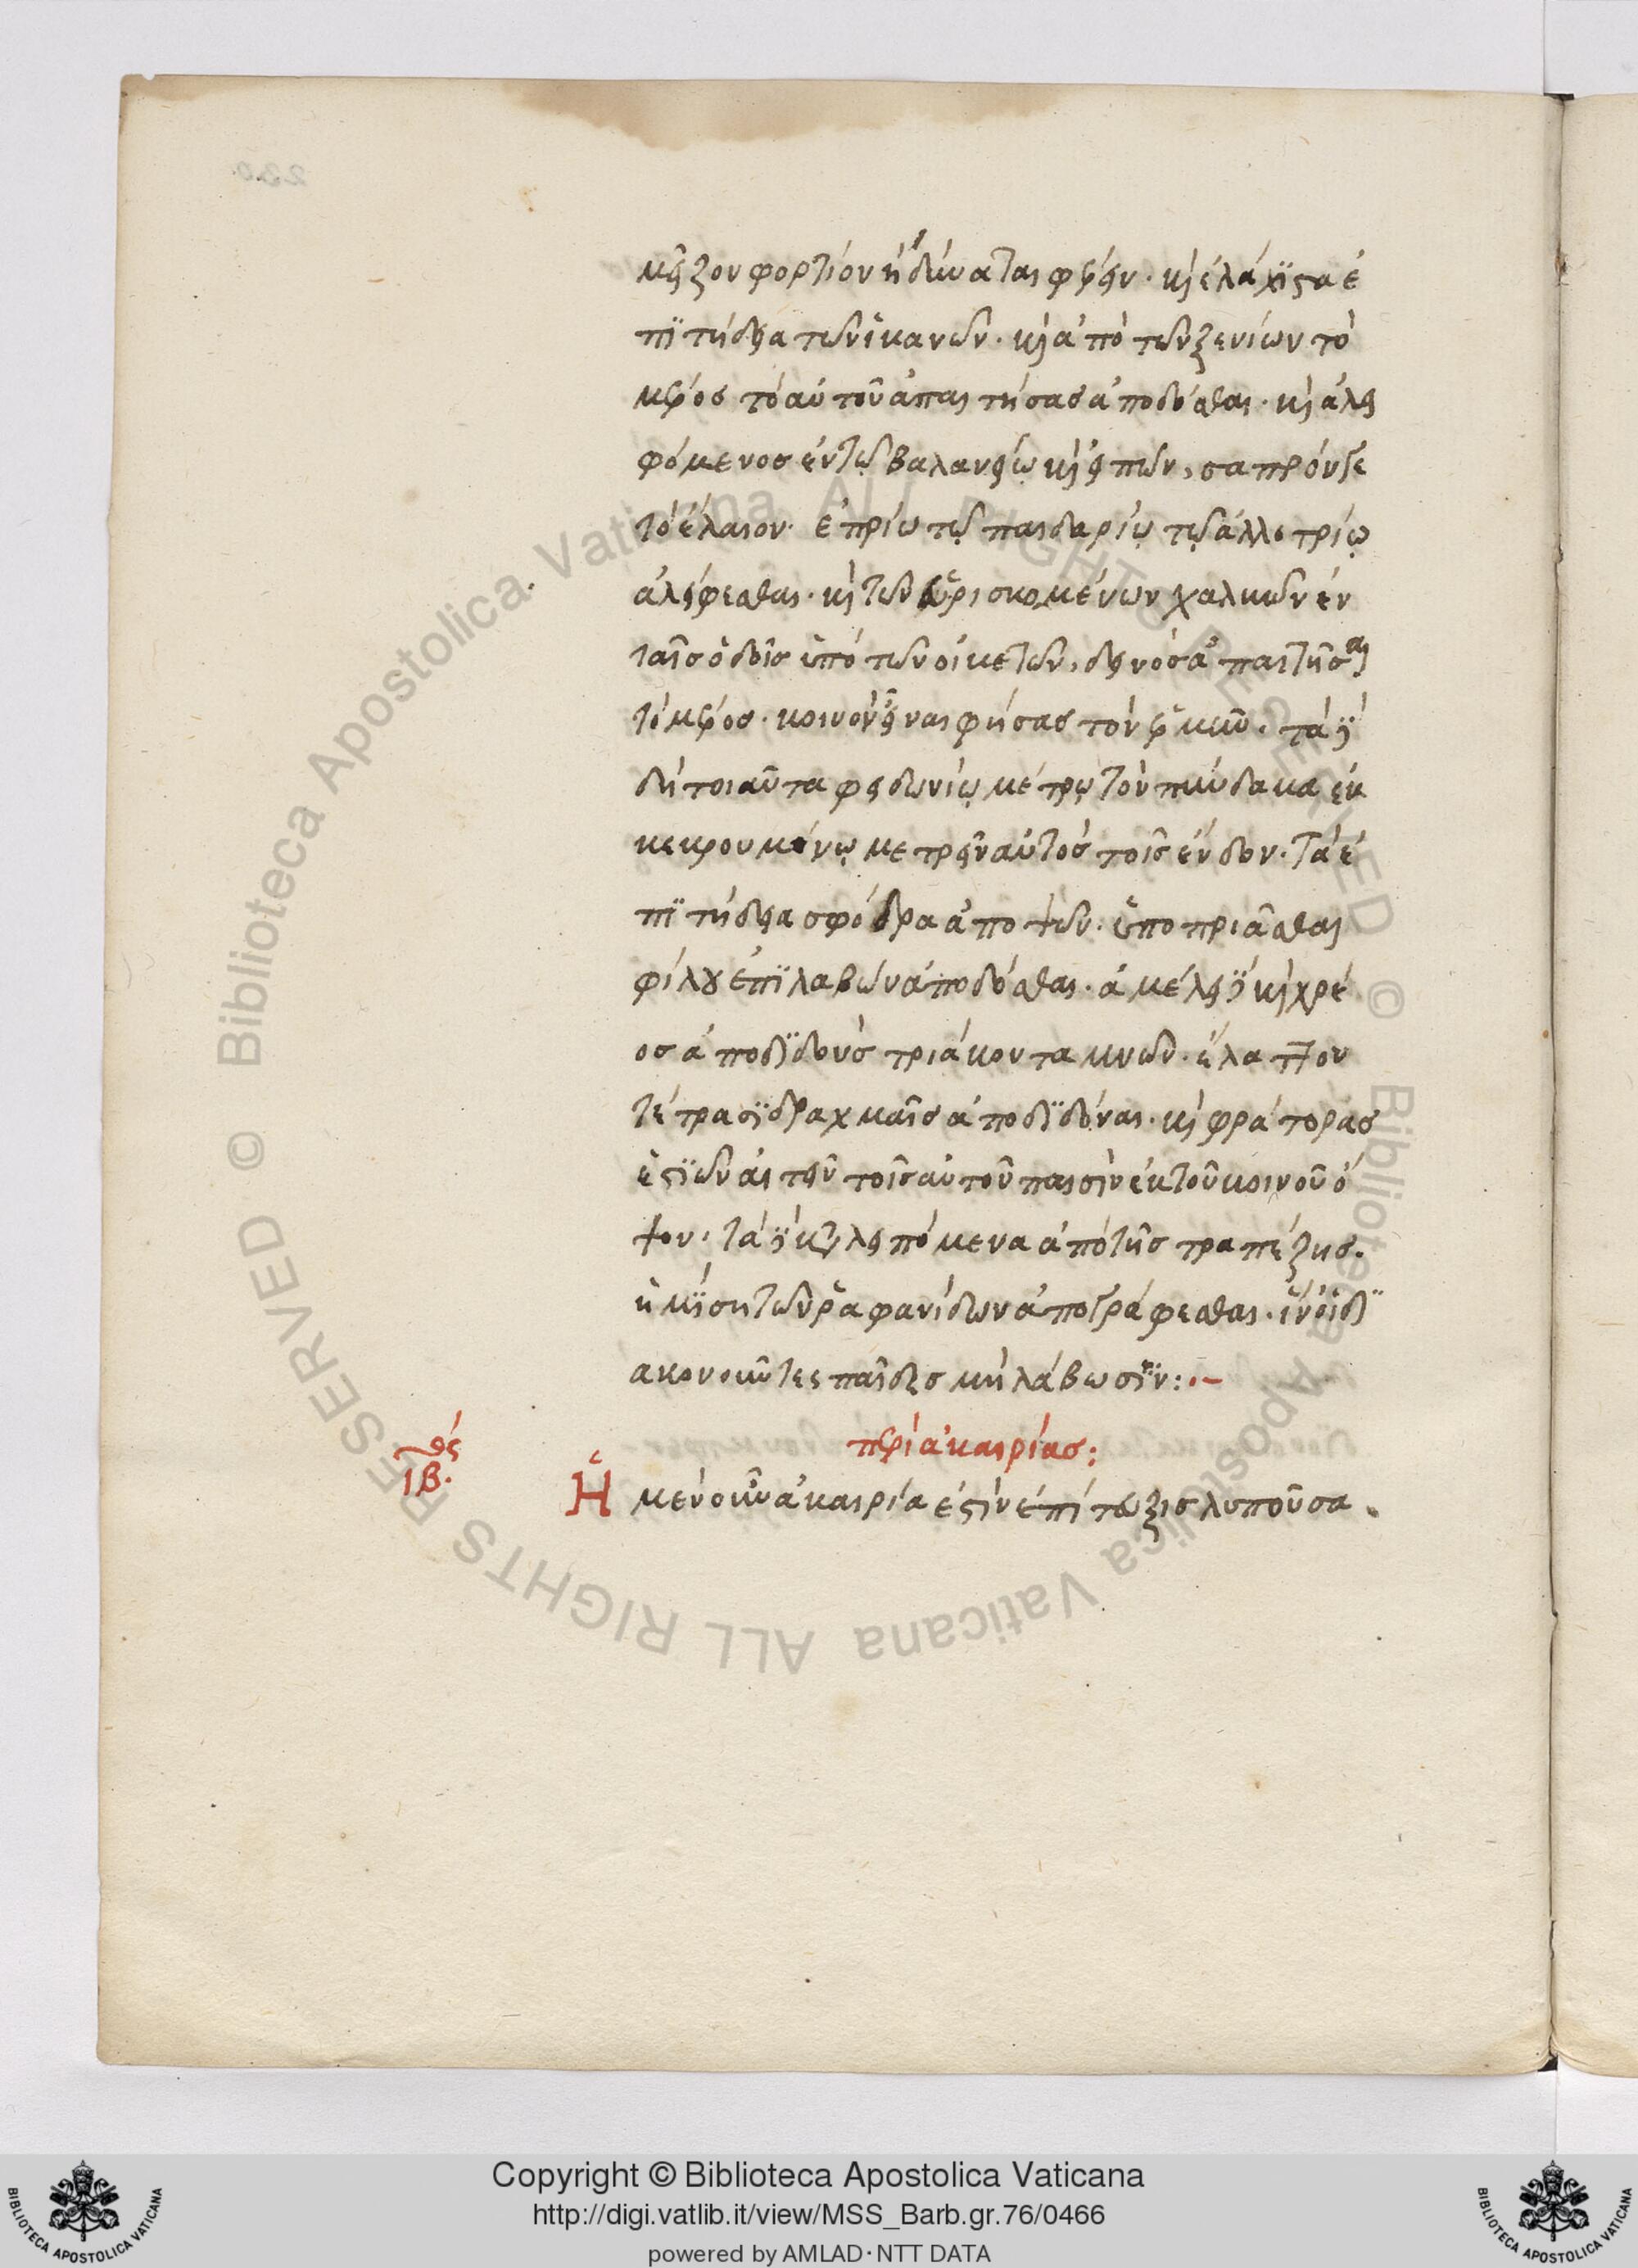 μεῖζον φορτίον ἢ δύναται φέρειν· καὶ ἐλάχιστα ἐ
πιτήδεια τῶν ἱκανῶν· καὶ ἀπὸ τῶν ξενίων τὸ
μέρος τὸ αὑτοῦ ἀπαιτήσας ἀποδόσθαι· καὶ ἀλει
φόμενος ἐν τῷ βαλανείῳ καὶ εἰπὼν, σαπρόν γε
τὸ ἔλαιον· ἐπρίω τῷ παιδαρίῳ τῷ ἀλλοτρίῳ
ἀλείφεσθαι· καὶ τῶν εὑρισκομένων χαλκῶν ἐν
ταῖς ὁδοῖς ὑπὸ τῶν οἰκετῶν, δεινὸς ἀπαιτῆσαι
τὸ μέρος· κοινὸν εἶναι φήσας τὸν ἑρμῆν· τὰ
δὴ τοιαῦτα φειδωνίῳ μέτρῳ τὸν πύνδακα ἐκ
κεκρουμένῳ μετρεῖν αὐτὸς τοῖς ἔνδον· τὰ ἐ
πιτήδεια σφόδρα ἀποψῶν· ὑποπρίασθαι
φίλου ἐπιλαβὼν ἀποδόσθαι· ἀμέλει δὲ καὶ χρέ
ος ἀποδιδοὺς τριάκοντα μνῶν· ἔλαττον
τέτρασι δραχμαῖς ἀποδιδόναι· καὶ φράτορας
ἑστιῶν αἰτεῖν τοῖς αὑτοῦ παισὶν ἐκ τοῦ κοινοῦ ὄ
ψον· τὰ δὲ καταλειπόμενα ἀπὸ τῆς τραπέζης·
ἡμίση τῶν ῥαφανίδων ἀπογράφεσθαι· ἵν' οἱ δι
ακονοῦντες παῖδες μὴ λάβωσιν:·–
περὶ ἀκαιρίας:
ιβ·
Ἡ μὲν οὖν ἀκαιρία ἐστὶν ἐπίτευξις λυποῦσα
Copyright © Biblioteca Apostolica Vaticana
http://digi.vatlib.it/view/MSS_Barb.gr.76/0466
powered by AMLAD·NTT DATA